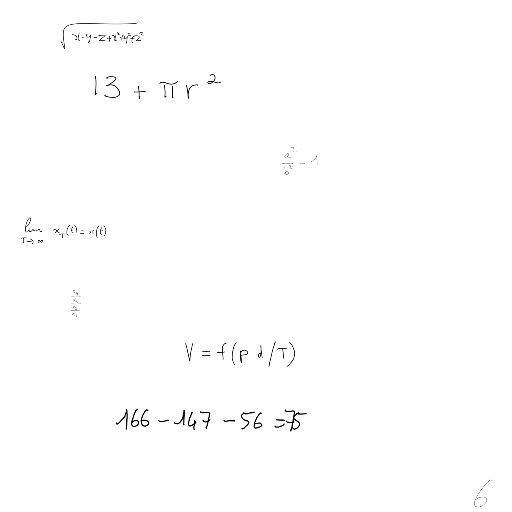 √(x-y-z+x²+y²+z²)
13 + πr²
a²/b² - 1
lim T→∞ x_T(t) = x(t)
V = f(p d/T)
166 - 147 - 56 = 75
6